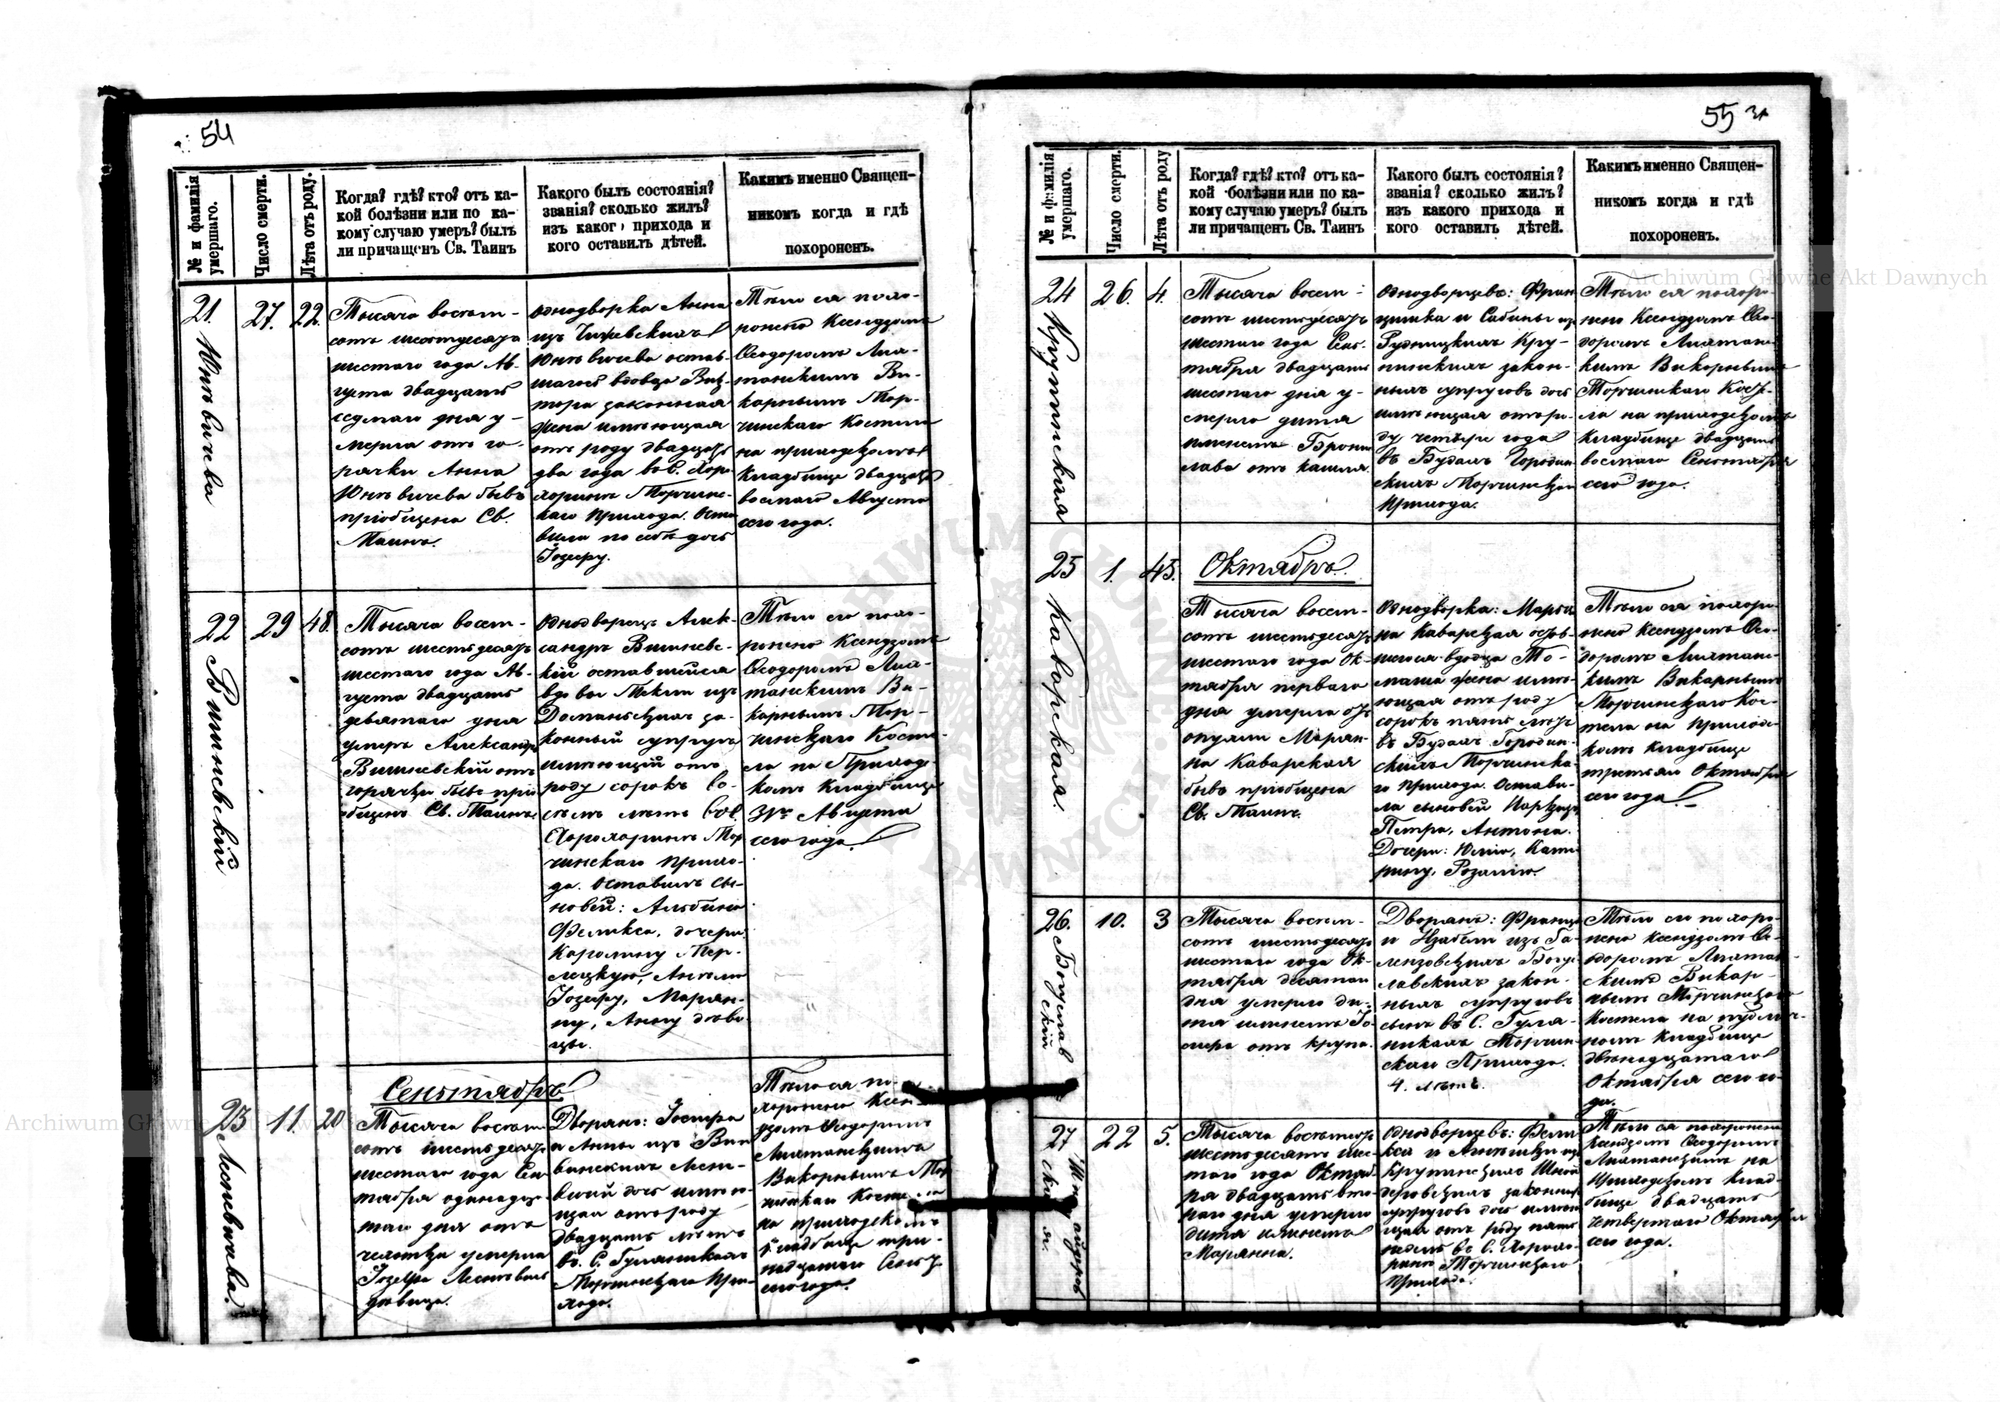 54
№ и фамилія умершаго.
Число смерти.
Лѣта отъ роду.
Когда? гдѣ? кто? отъ ка-
кой болѣзни или по ка-
кому случаю умеръ? былъ
ли причащенъ Св. Таинъ
Какого былъ состоянія?
званія? сколько жилъ?
изъ какого прихода и
кого оставилъ дѣтей.
Какимъ именно Священ-
никомъ когда и гдѣ
похороненъ.
21.
27.
22.
Тысяча восемь-
сотъ шестьдесятъ
шестаго года Ав-
густа двадцать
седмаго дня у-
мерла отъ го-
рячки Анна
бывъ
пріобщена Св.
Таинъ.
однодворка Анна
изъ
остав-
шагося вдовца Вик-
тора законная
жена имѣющая
отъ роду двадцать
два года въ С. Хоро-
хоринѣ Торчинс-
каго прихода. Оста-
вила по себѣ дочь
Іозефу.
Тѣло ея похо-
ронено Ксендзомъ
Ѳеодоромъ
Ви-
карнымъ Тор-
чинскаго Костела
на приходскомъ
кладбище двадцать
восмаго Августа
сего года.
22
Вишневскій
29
48.
Тысяча восемь-
сотъ шестьдесятъ
шестаго года Ав-
густа двадцать
девятаго дня
умеръ Александръ
Вишневскій отъ
горячки бывъ прі-
общенъ Св. Таинъ.
однодворецъ Алек-
сандръ Вишневс-
кій оставшійся
вдовы Текли изъ
за-
конный супругъ
имѣющій отъ
роду сорокъ во-
семь лѣтъ въ С.
Хорохоринѣ Тор-
чинскаго прихо-
да. оставилъ сы-
новей: Альбина
Феликса, дочери:
Каролину
Іозефу, Марян-
ну, Анну дѣви-
цы.
Тѣло его похо-
ронено Ксендзомъ
Ѳеодоромъ
Ви-
карнымъ Тор-
чинскаго Косте-
ла на Приход-
комъ кладбище
Августа
сего года
Сентябрь
23
11.
20
Тысяча восемь
сотъ шестьдесятъ
шестаго года Сен-
тября одинадца-
таго дня отъ
умерла
Іозефа
дѣвица.
Дворянъ: Іосифа
и Анны изъ
дочь имѣю-
щая отъ роду
двадцать лѣтъ
въ С.
Торчинскаго При-
хода.
Тѣло ея по-
хоронено Ксен-
дзомъ Ѳеодоромъ
Викарнымъ Тор-
чинскаго Костела
на приходскомъ
кладбище три-
надцатаго
сего года.
55
№ и фамилія умершаго.
Число смерти.
Лѣта отъ роду
Когда? гдѣ? кто? отъ ка-
кой болѣзни или по ка-
кому случаю умеръ? былъ
ли причащенъ Св. Таинъ
Какого былъ состоянія?
званія? сколько жилъ?
изъ какого прихода и
кого оставилъ дѣтей.
Какимъ именно Священ-
никомъ когда и гдѣ
похороненъ.
24
Крупинская
26.
4.
Тысяча восем-
сотъ шестьдесятъ
шестаго года Сен-
тября двадцать
шестаго дня у-
мерло дитя
именемъ Брони-
слава отъ кашля.
Однодворцевъ: Фран-
цишка и Сабины изъ
Рудницкихъ Кру-
пинскихъ закон-
ныхъ супруговъ дочь
имѣющая отъ ро-
ду четыре года
въ Будахъ Городин-
скихъ Торчинскаго
Прихода.
Тѣло ея похоро-
нено Ксендзомъ Ѳео-
доромъ
Викарнымъ
Торчинскаго Косте-
ла на приходскомъ
кладбище двадцать
восмаго Сентября
сего года.
25
Каварская.
1.
45.
Октябрь.
Тысяча восем-
сотъ шестьдесятъ
шестаго года Ок-
тября перваго
дня умерла отъ
опухли Марян-
на Каварская
бывъ пріобщена
Св. Таинъ.
Однодворка: Марьян-
на Каварская остав-
шагося вдовца То-
маша жена имѣ-
ющая отъ роду
сорокъ пять лѣтъ
въ Будахъ Городин-
скихъ Торчинска-
го Прихода. Остави-
ла сыновей
Петра, Антона.
Дочери: Юлію, Кате-
рину, Розалію.
Тѣло ея похоро-
нено Ксендзомъ Ѳео-
доромъ
Викарнымъ
Торчинскаго Кос-
тела на приходс-
комъ кладбище
третьяго Октября
сего года
26.
Богуславскій
10.
3
Тысяча восемь-
сотъ шестьдесятъ
шестаго года Ок-
тября десятаго
дня умерло ди-
тя именемъ
отъ крупа.
Дворянъ: Францишка
и Изабели изъ
Богу-
славскихъ закон-
ныхъ супруговъ
сынъ въ С.
Торчин-
скаго Прихода.
4. лѣтъ.
Тѣло его похоро-
нено Ксендзомъ Ѳе-
одоромъ
Викар-
нымъ Торчинскаго
Костела на
номъ кладбище
двѣнадцатаго
Октября сего го-
да.
27
22
5.
Тысяча восемьсотъ
шестьдесятъ шес-
таго года Октяб-
ря двадцать вто-
раго дня умерло
дитя именемъ
Марянна.
Однодворцевъ: Фели-
кса и изъ
Крупинскихъ Шнай-
деровскихъ законныхъ
супруговъ дочь имѣю-
щая отъ роду пять
въ С. Хорохо-
ринѣ Торчинскаго
Прихода.
Тѣло ея похоронено
Ксендзомъ Ѳеодоромъ
на
Приходскомъ клад-
бище двадцать
четвертаго Октября
сего года.
Archiwum Główne Akt Dawnych